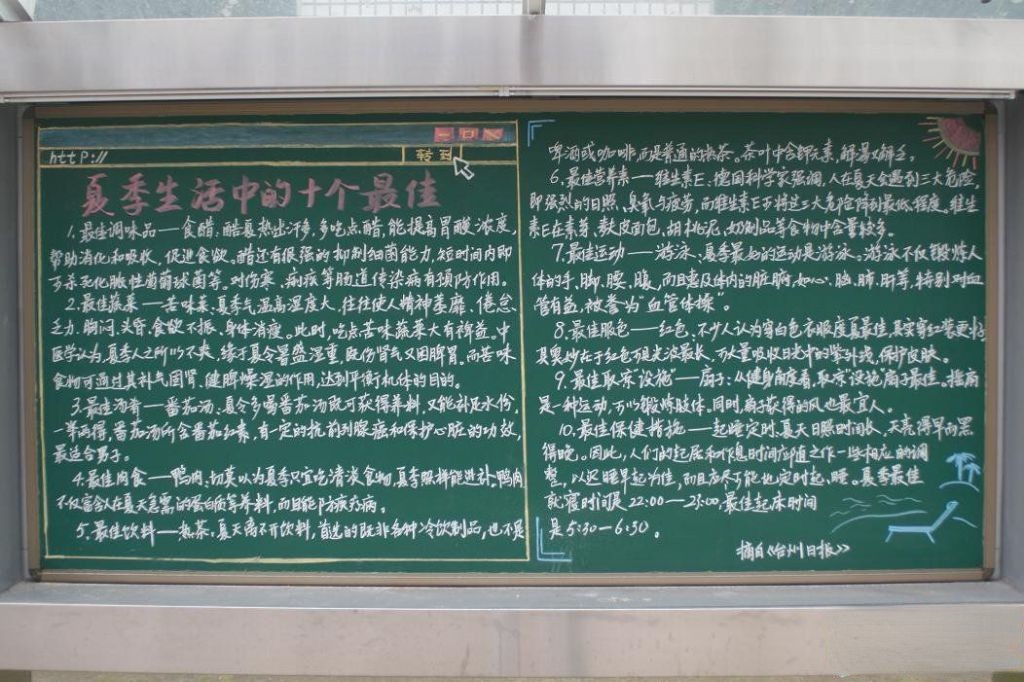 http://
转到
夏季生活中的十个最佳
1.最佳调味品——食醋。酷夏热出汗多,多吃点醋,能提高胃酸浓度,
帮助消化和吸收,促进食欲。醋还有很强的抑制细菌能力,短时间内即
可杀死化脓性葡萄球菌等。对伤寒、痢疾等肠道传染病有预防作用。
2.最佳蔬菜——苦味菜。夏季气温高湿度大,往往使人精神萎靡、倦怠
乏力、胸闷、头昏、食欲不振、身体消瘦。此时,吃点苦味蔬菜大有裨益。中
医学认为,夏季人之所以不爽,缘于夏令暑盛湿重,既伤肾气又困脾胃。而苦味
食物可通过其补气固肾、健脾燥湿的作用,达到平衡机体的目的。
3.最佳汤肴——番茄汤。夏令多喝番茄汤既可获得养料,又能补足水份,
一举两得,番茄汤所含番茄红素,有一定的抗前列腺癌和保护心脏的功效,
最适合男子。
4.最佳肉食——鸭肉。切莫以为夏季只宜吃清淡食物,夏季照样能进补。鸭肉
不仅富含人在夏天急需的蛋白质等养料,而且能防疾疗病。
5.最佳饮料——热茶。夏天离不开饮料,首选的既非各种冷饮制品,也不是
啤酒或咖啡,而是普通的热茶。茶叶中含钾元素,解暑又解乏。
6.最佳营养素——维生素E。德国科学家强调,人在夏天会遇到三大危险,
即强烈的日照、臭氧与疲劳,而维生素E可将这三大危险降到最低程度。维生
素E在麦芽、麸皮面包、胡桃泥、奶制品等食物中含量较多。
7.最佳运动——游泳。夏季最好的运动是游泳。游泳不仅锻炼人
体的手、脚、腰、腹,而且惠及体内的脏腑,如心、脑、肺、肝等,特别对血
管有益,被誉为“血管体操”。
8.最佳服色——红色。不少人认为穿白色衣服度夏最佳,其实穿红装更好
其奥妙在于红色可见光波最长,可大量吸收日光中的紫外线,保护皮肤。
9.最佳取凉“设施”——扇子。从健身角度看,取凉“设施”扇子最佳。摇扇
是一种运动,可以锻炼肢体。同时,扇子获得的风也最宜人。
10.最佳保健措施——起睡定时。夏天日照时间长,天亮得早而黑
得晚。因此,人们的起居和作息时间应随之作一些相应的调
整,以迟睡早起为佳,而且应尽可能地定时起、睡。夏季最佳
就寝时间是22:00——23:00,最佳起床时间
是5:30—6:30。
摘自《台州日报》